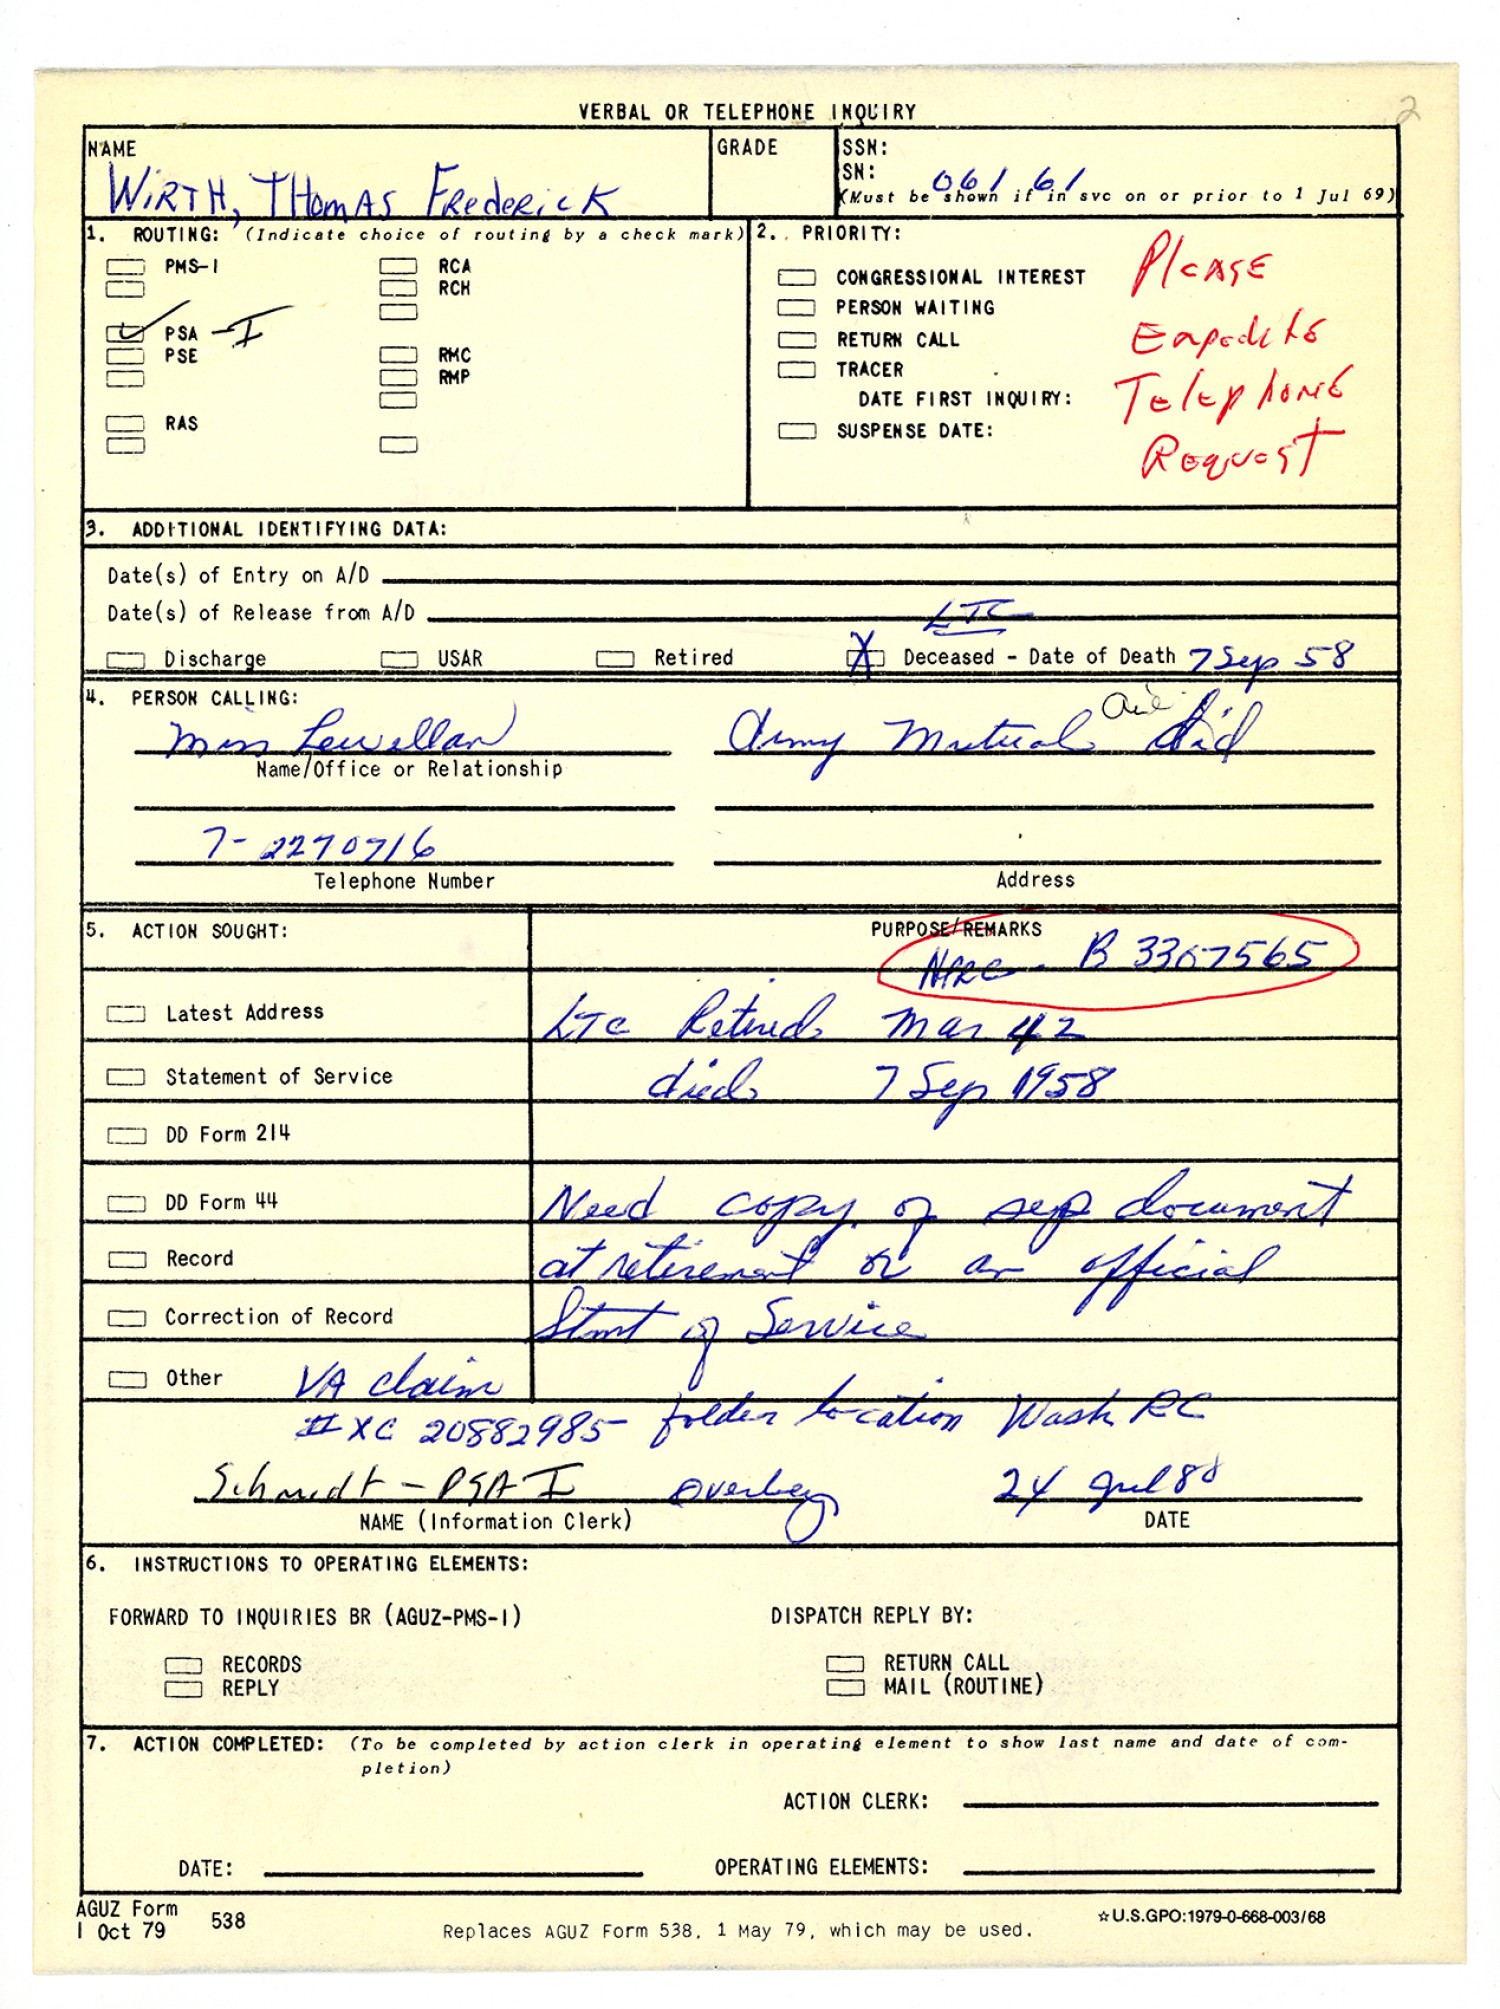 2
VERBAL OR TELEPHONE INQUIRY
NAME
WIRTH, THOMAS FREDERICK
GRADE
SSN:
SN: 061 61
(Must be shown if in svc on or prior to 1 Jul 69)
1. ROUTING: (Indicate choice of routing by a check mark)
PMS-I
RCA
RCH
PSA - I
PSE
RMC
RMP
RAS
2. PRIORITY:
CONGRESSIONAL INTEREST
PERSON WAITING
RETURN CALL
TRACER
DATE FIRST INQUIRY:
SUSPENSE DATE:
Please
Expedite
Telephone
Request
3. ADDITIONAL IDENTIFYING DATA:
Date(s) of Entry on A/D
Date(s) of Release from A/D
LTC
Discharge USAR Retired X Deceased - Date of Death 7 Sep 58
4. PERSON CALLING:
Miss Lewellan Army Mutual Aid
Name/Office or Relationship
7-2270716
Telephone Number Address
5. ACTION SOUGHT:
PURPOSE/REMARKS
B 3307565
Latest Address
LTC Retired Mar 42
Statement of Service
died 7 Sep 1958
DD Form 214
DD Form 44
Need copy of sep document
Record
at retirement or an official
Correction of Record
Stmt of Service
Other VA claim
# XC 20882985 folder location Wash RC
Schmidt - PSA I Overbey 24 Jul 80
NAME (Information Clerk) DATE
6. INSTRUCTIONS TO OPERATING ELEMENTS:
FORWARD TO INQUIRIES BR (AGUZ-PMS-I) DISPATCH REPLY BY:
RECORDS RETURN CALL
REPLY MAIL (ROUTINE)
7. ACTION COMPLETED: (To be completed by action clerk in operating element to show last name and date of com-
pletion)
ACTION CLERK:
DATE: OPERATING ELEMENTS:
AGUZ Form
1 Oct 79 538
Replaces AGUZ Form 538, 1 May 79, which may be used.
☆U.S.GPO:1979-0-668-003/68